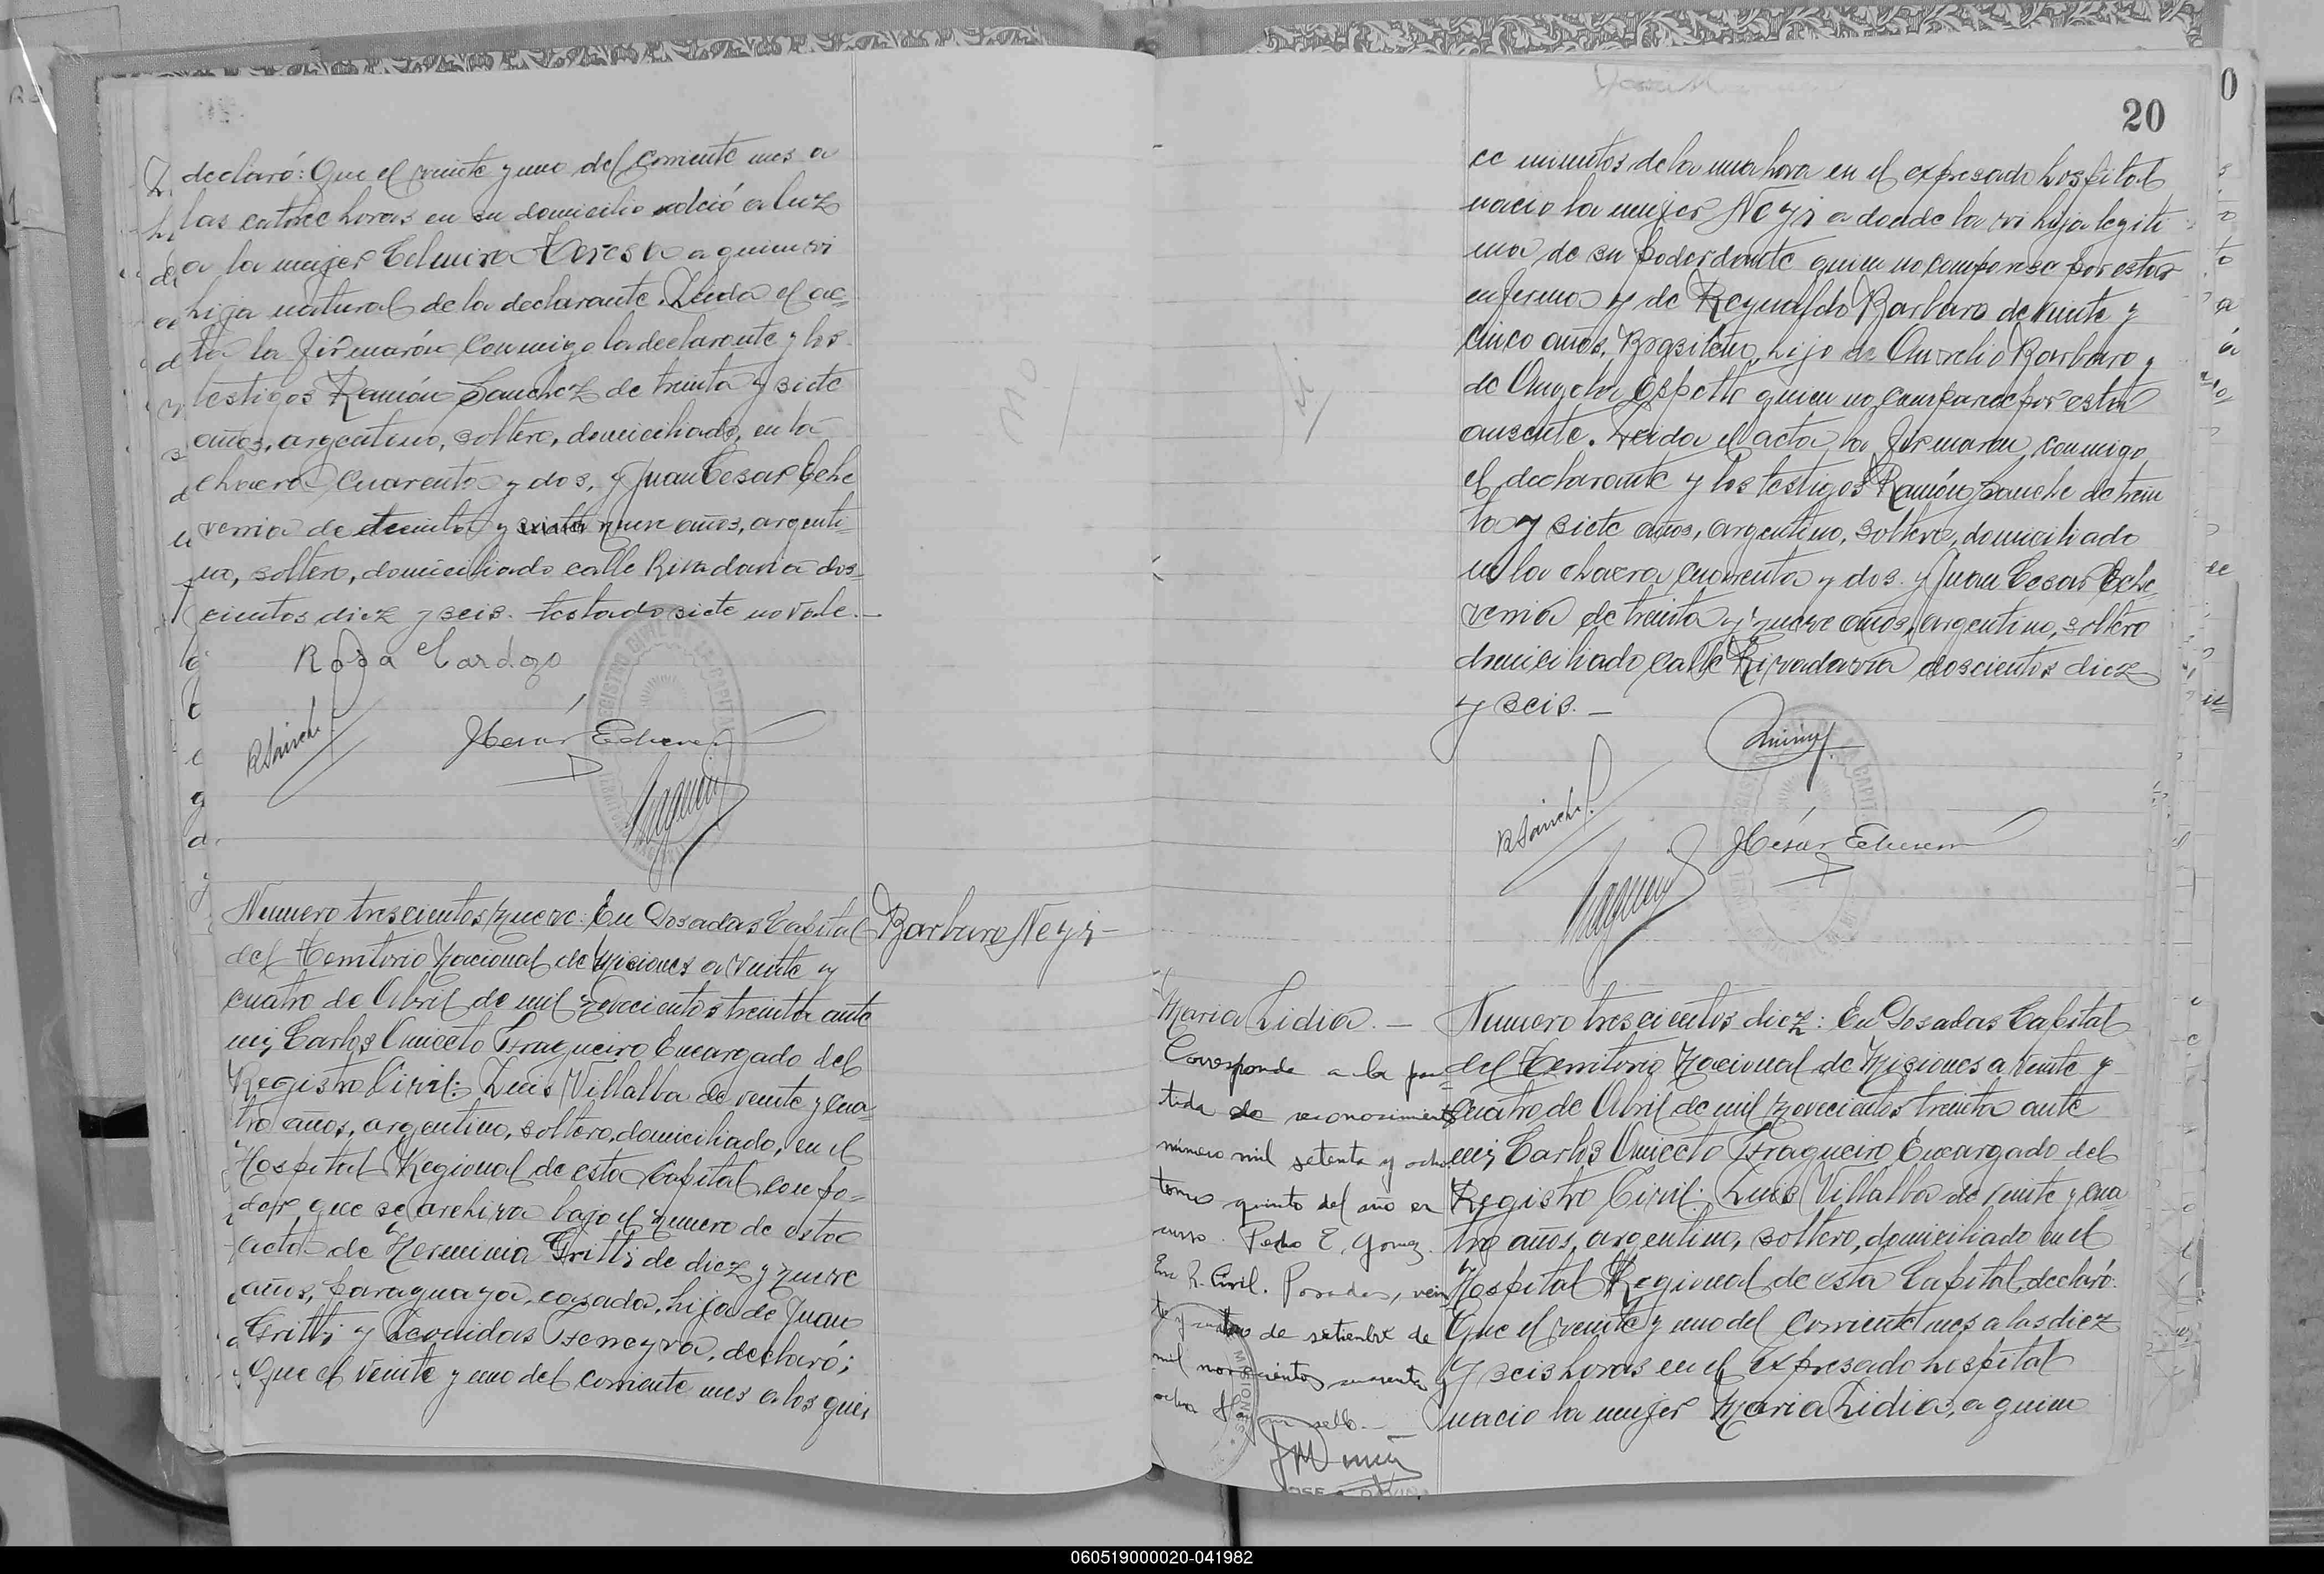 declaró: Que el veinte y uno del corriente mes a
las catorce horas en su domicilio dió a luz
a la mujer Edmira Teresa a quien vi
hija natural de la declarante. Leida el ac-
ta la firmarón conmigo la declarante y los
testigos Ramón Sanchez de treinta y siete
años, argentino, soltero, domiciliado, en la
chacra cuarenta y dos, y Juan Cesar Eche
verria de treinta y siete nueve años, argenti
no, soltero, domiciliado calle Rivadavia dos-
cientos diez y seis. testado siete no vale.—
Rosa Cardozo
RSanche
César Echever
REGISTRO CIVIL DE LA CAPITAL
Numero trescientos nueve: En Posadas Capital
del Territorio Nacional de Misiones a veinte y
cuatro de Abril de mil novecientos treinta ante
mi, Carlos Aniceto Fragueiro Encargado del
Registro Civil: Luis Villalba de veinte y cua-
tro años, argentino, soltero, domiciliado, en el
Hospital Regional de esta Capital, con po-
der que se archiva bajo el numero de esta
acta de Herminia Gritti de diez y nueve
años, paraguaya, casada, hija de Juan
Gritti y Leonidas Ferreyra, declaró;
Que el veinte y uno del corriente mes a los quin
Barbaro Neyi-
20
ce minutos de la una hora en el expresado hospital
nacio la mujer Neyi a donde la vi hija legiti
ma de su poderdante quien no comparece por estar
enferma y de Reynaldo Barbaro de veinte y
cinco años, Brasileño, hijo de Aurelio Barbaro y
de Angela quien no comparece por estar
ausente. Leida el acta la firmaron conmigo
el declarante y los testigos Ramón Sanche de trein
ta y siete años, argentino, soltero, domiciliado
en la chacra cuarenta y dos y Juan Cesar Eche
verria de treinta y nueve años, argentino, soltero
domiciliado calle Rivadavia doscientos diez
y seis.—
RSanche
César Echever
Maria Lidia.—
Corresponde a la par-
tida de reconocimiento
número mil setenta y ocho
tomo quinto del año en
curso. Pedro E. Gomez.
Enc R. Civil. Posadas, vein
te y cuatro de setiembre de
mil novecientos cuarenta y
ocho Hay un sello.—
MISIONES
Numero trescientos diez: En Posadas Capital
del Territorio Nacional de Misiones a veinte y
cuatro de Abril de mil novecientos treinta ante
mi, Carlos Aniceto Fragueiro Encargado del
Registro Civil: Luis Villalba de veinte y cua
tro años, argentino, soltero, domiciliado en el
Hospital Regional de esta Capital, declaró:
Que el veinte y uno del corriente mes a las diez
y seis horas en el expresado hospital
nacio la mujer Maria Lidia, a quien
060519000020-041982